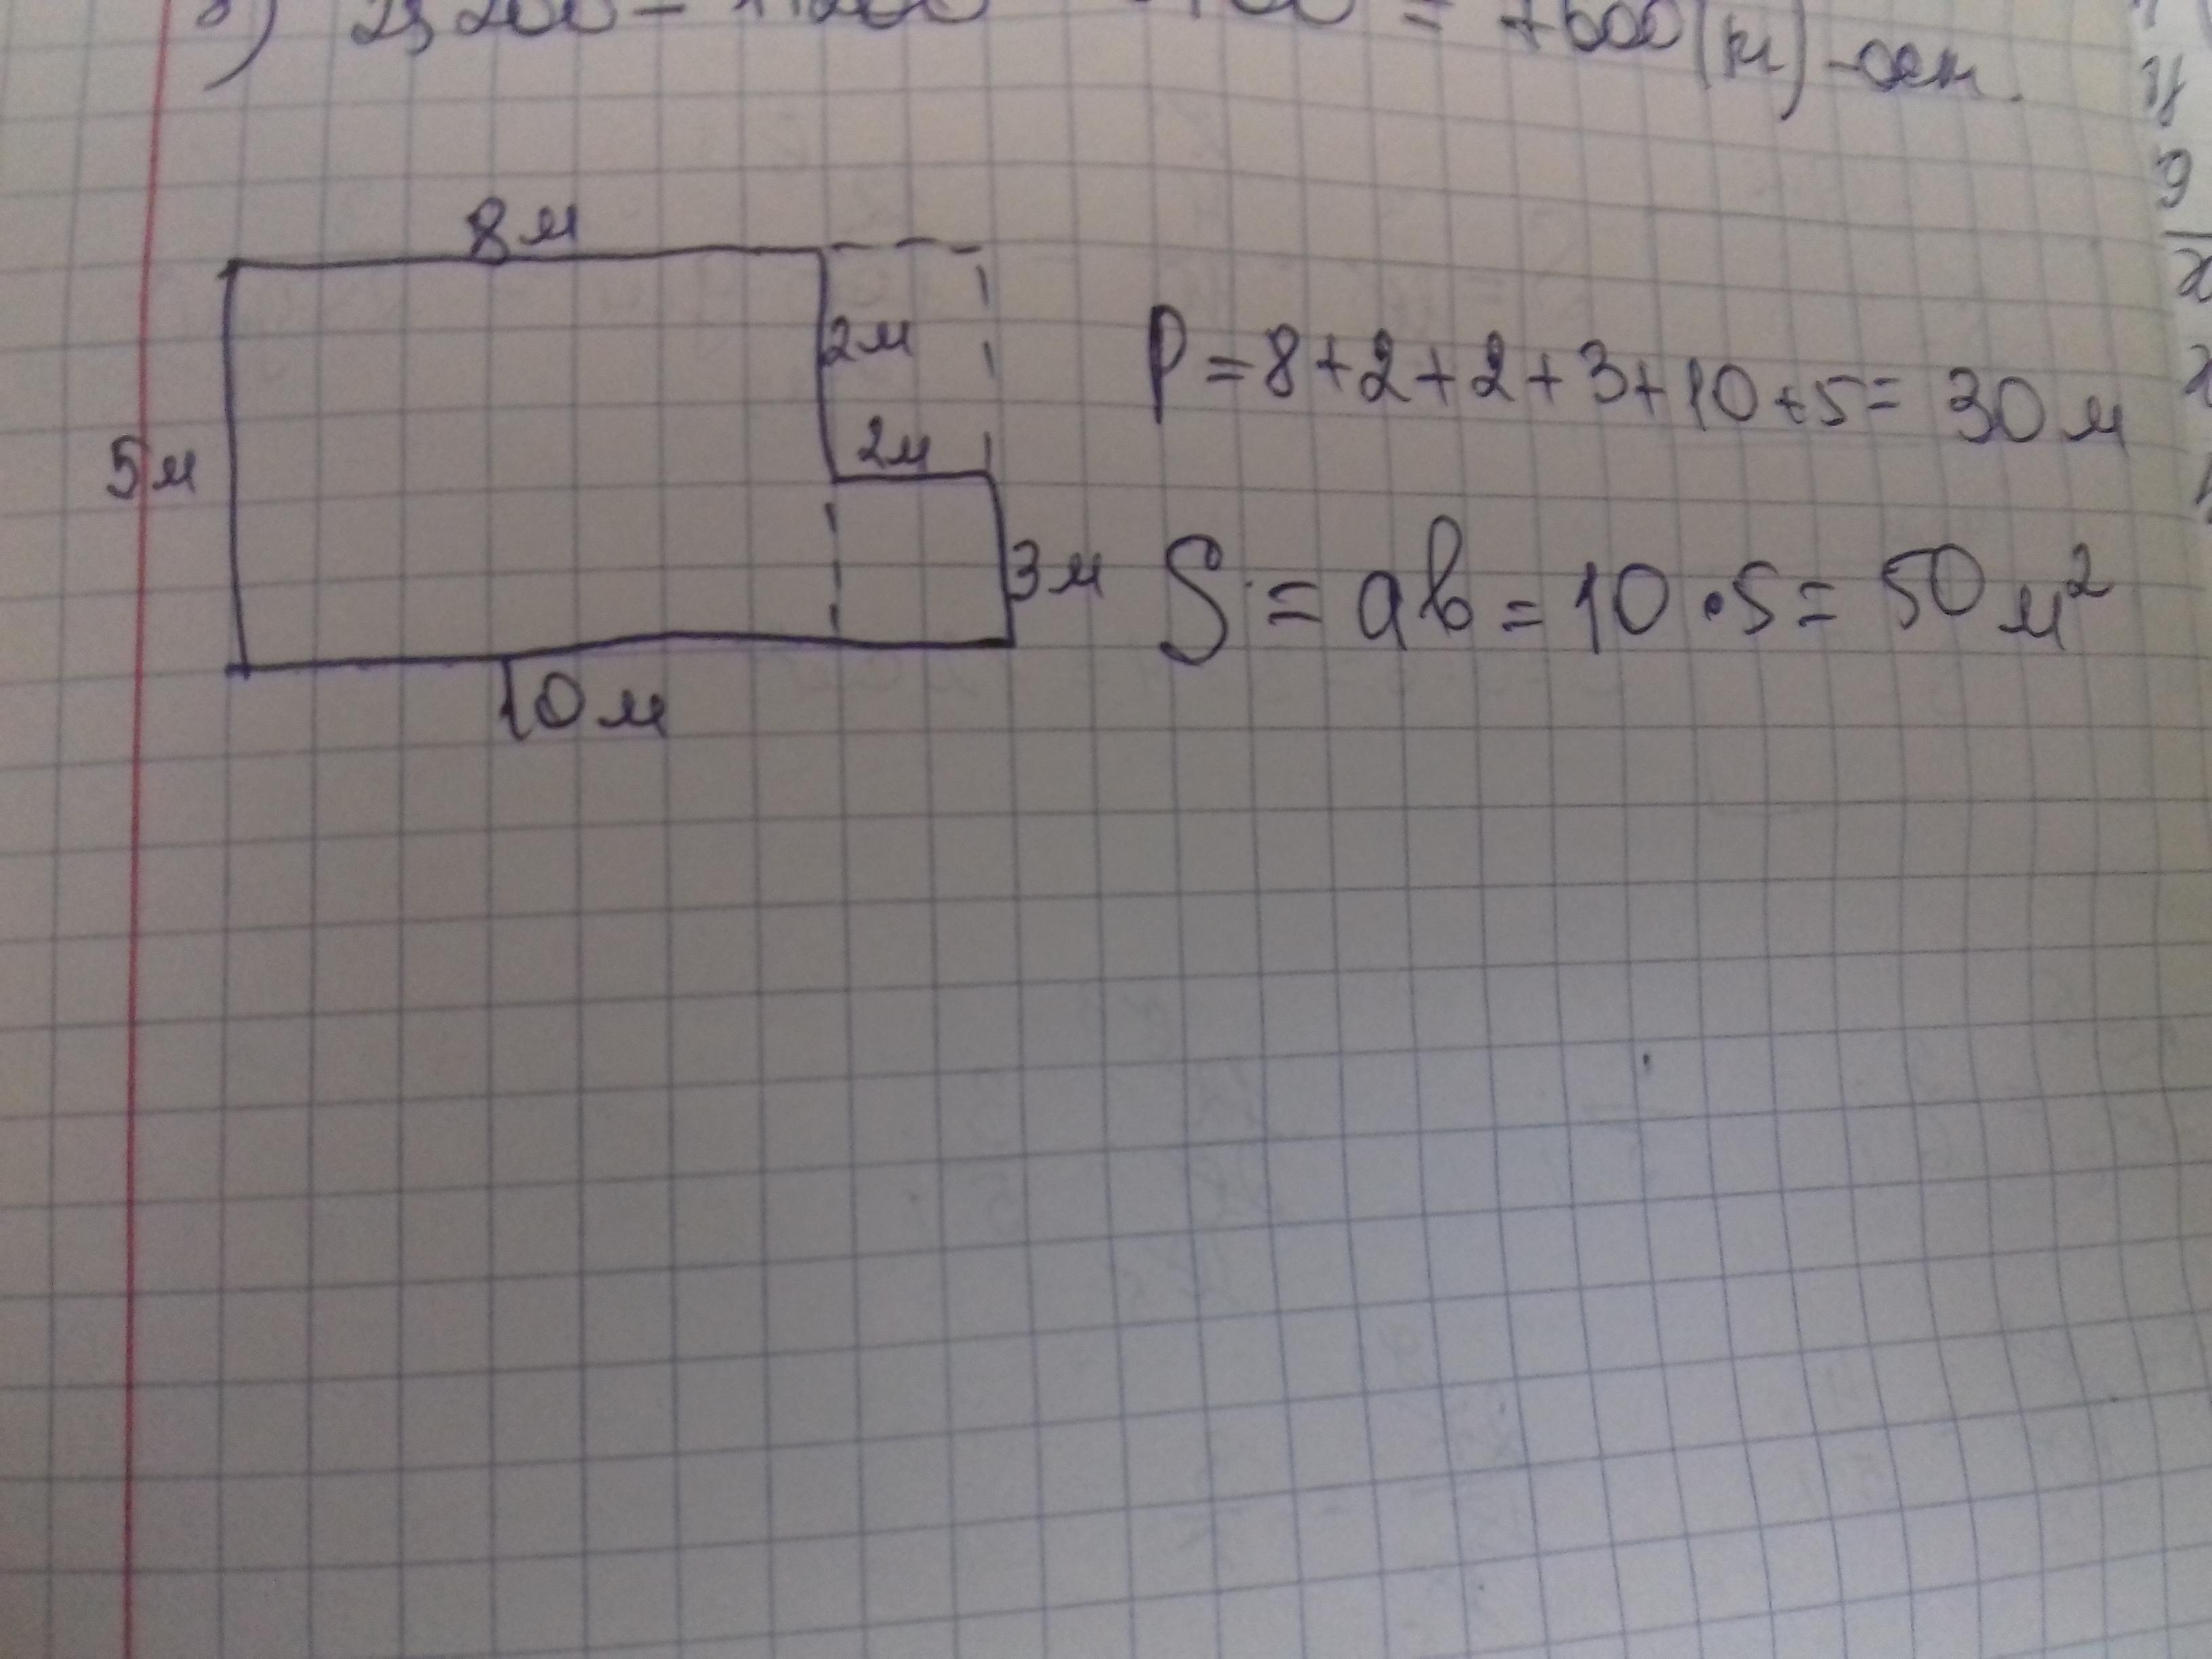 = 7600 (м) - ост.
8м
2м
2м
5м
3м
10м
P = 8+2+2+3+10+5= 30 м
S = ab = 10 • 5 = 50 м²